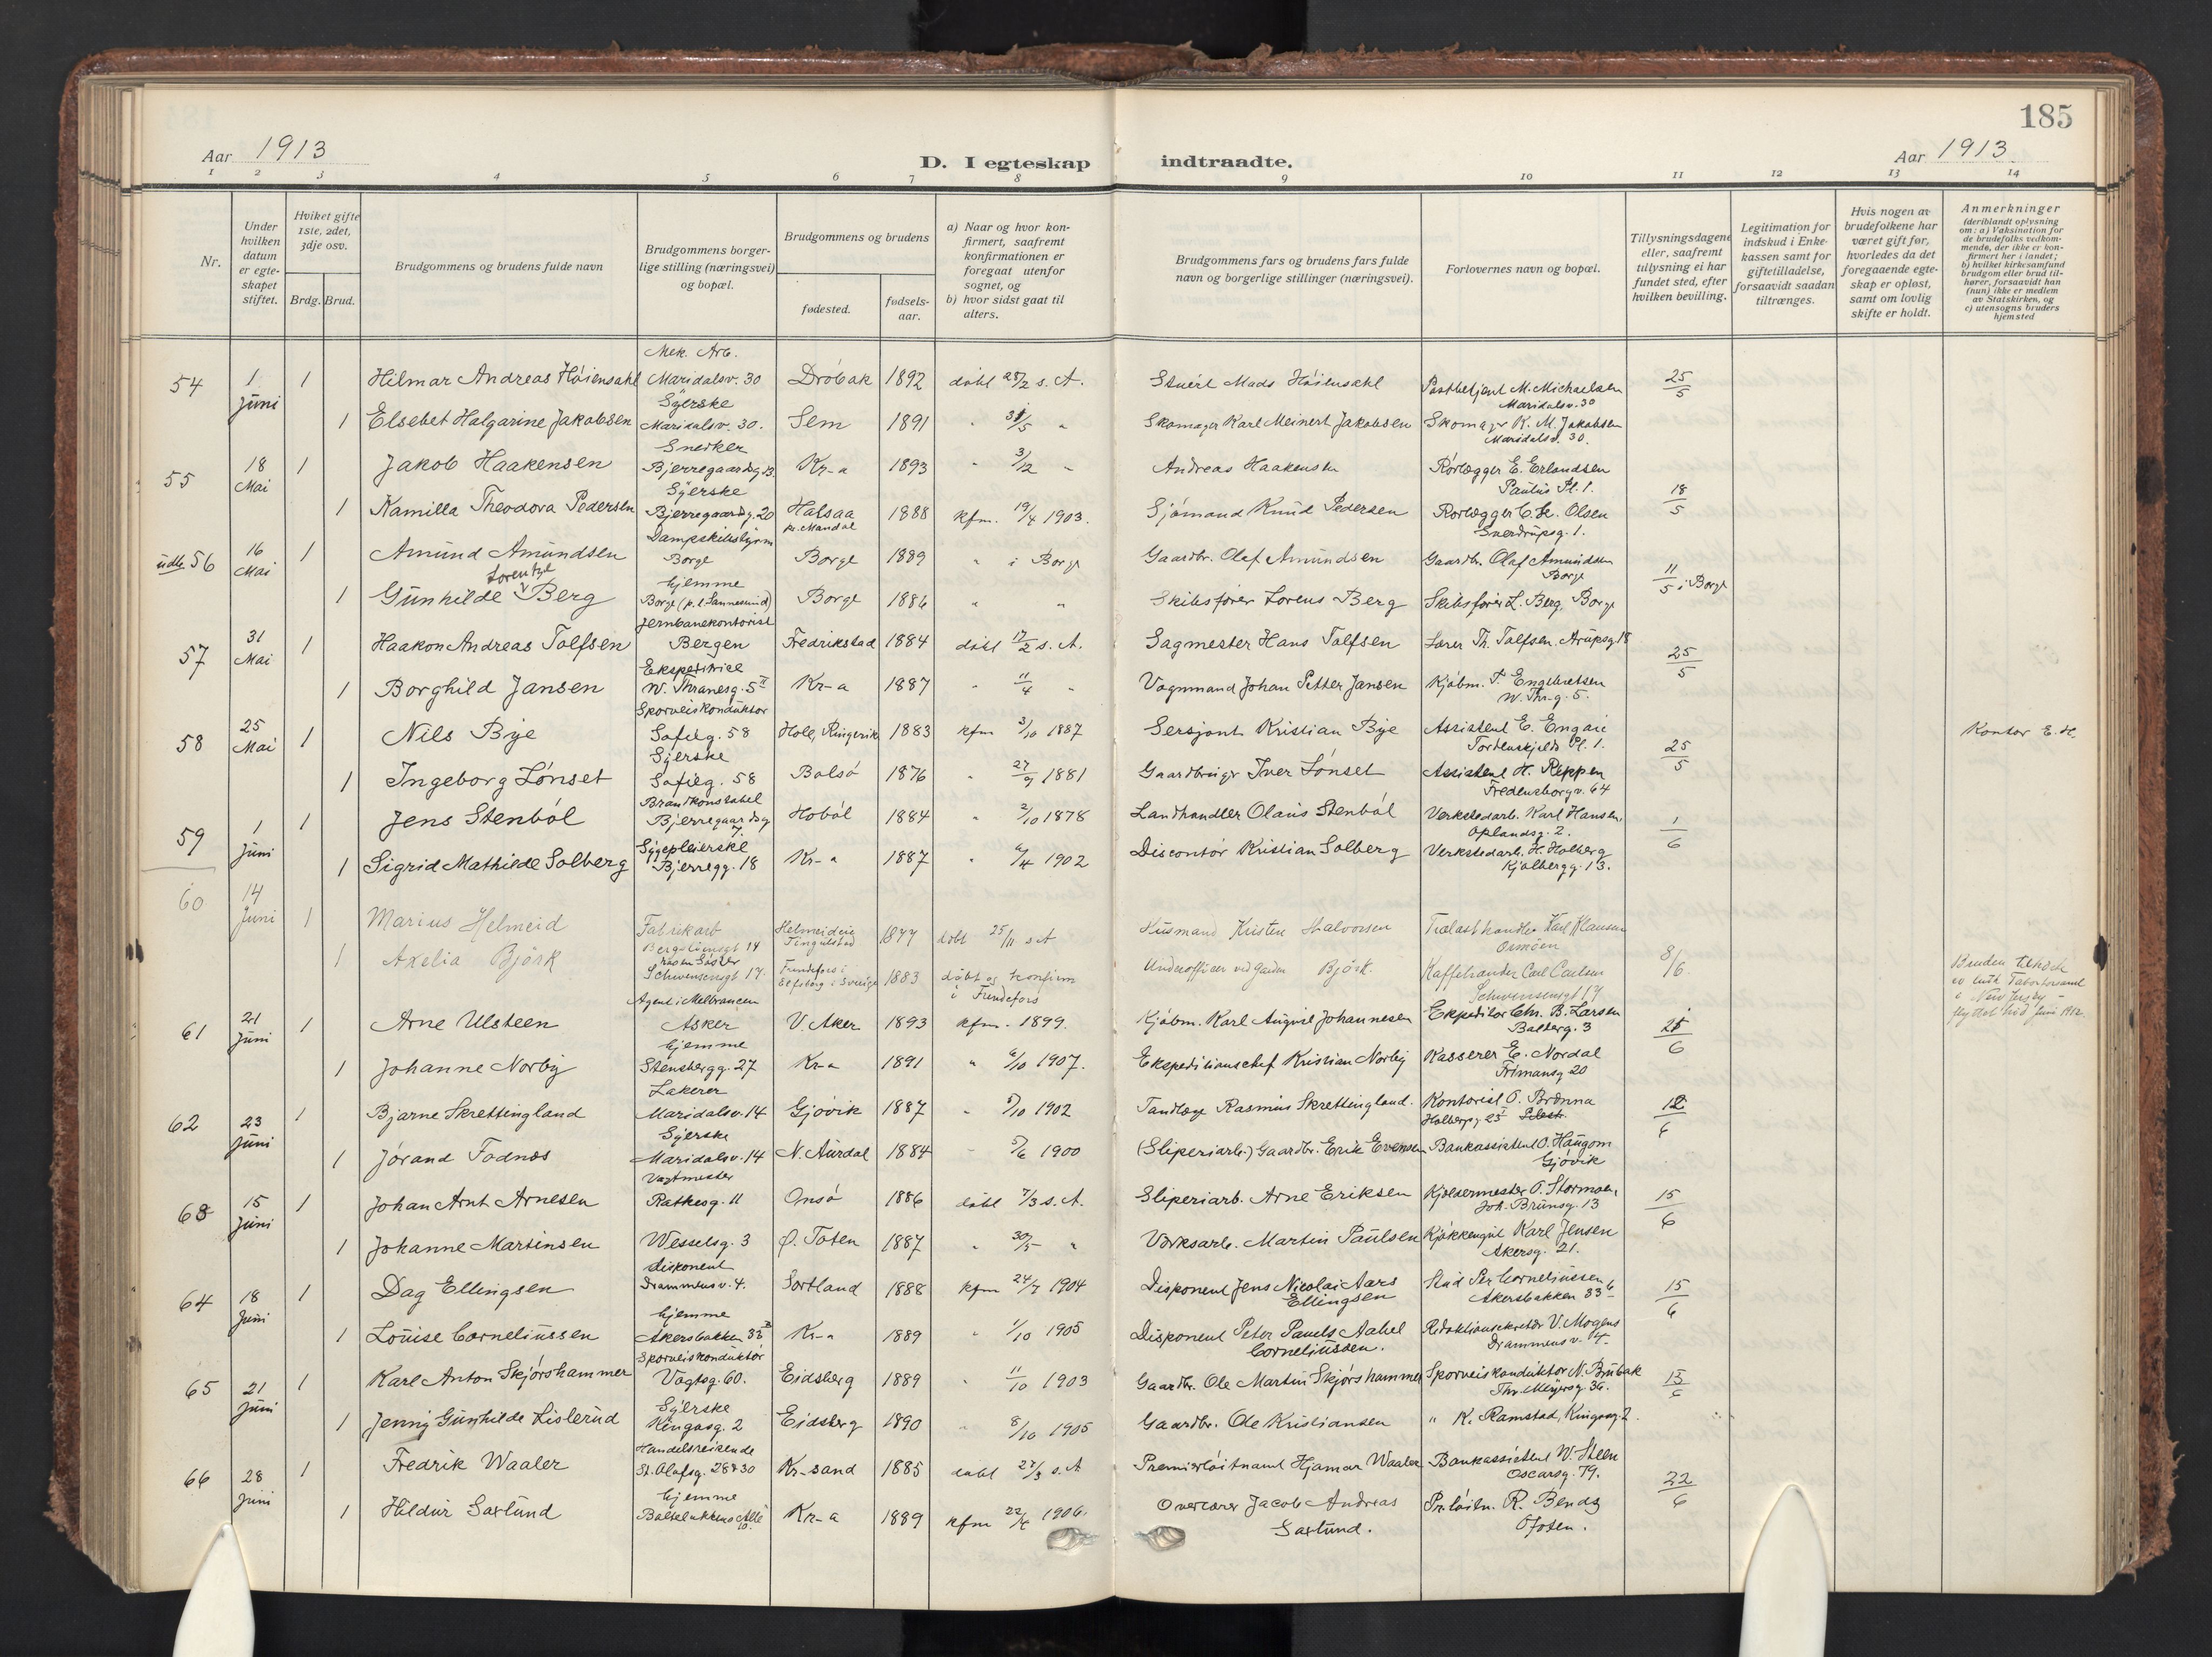 185
Aar 1913
D. I egteskap indtraadte.
Aar 1913
1 2 3 4 5 6 7 8 9 10 11 12 13 14
Nr.
Under hvilken datum er egteskapet stiftet.
Hviket gifte 1ste, 2det, 3dje osv.
Brdg. Brud.
Brudgommens og brudens fulde navn
Brudgommens borgerlige stilling (næringsvei) og bopæl.
Brudgommens og brudens
fødested.
fødselsaar.
a) Naar og hvor konfirmert, saafremt konfirmationen er foregaat utenfor sognet, og
b) hvor sidst gaat til alters.
Brudgommens fars og brudens fars fulde navn og borgerlige stillinger (næringsvei).
Forlovernes navn og bopæl.
Tillysningsdagene eller, saafremt tillysning ei har fundet sted, efter hvilken bevilling.
Legitimation for indskud i Enkekassen samt for giftetilladelse, forsaavidt saadan tiltrænges.
Hvis nogen av brudefolkene har været gift før, hvorledes da det foregaaende egteskap er opløst, samt om lovlig skifte er holdt.
Anmerkninger
(deriblandt oplysning om: a) Vaksination for de brudefolks vedkommende, der ikke er konfirmert her i landet; b) hvilket kirkesamfund brudgom eller brud tilhører, forsaavidt han (hun) ikke er medlem av Statskirken, og c) utensogns bruders hjemsted
54 1 Juni 1 Hilmar Andreas Høiensahl Mek. Arb. Maridalsv. 30 Drøbak 1892 døbt 28/2 s. A. Stuert Mads Høiensahl Postbetjent M. Michaelsen Maridalsv. 30 25/5
1 Elsebet Halgarine Jakobsen Syerske Maridalsv. 30. Sem 1891 " 31/5 " Skomager Karl Meinert Jakobsen Skomager K. M. Jakobsen Maridalsv. 30.
55 18 Mai 1 Jakob Haakensen Snerker Bjerregaardsg. 13 Kr-a 1893 " 3/12 " Andreas Haakensen Rørlægger E. Erlandsen Paulus Pl. 1. 18/5
1 Kamilla Theodora Pedersen Syerske Bjerregaardsg. 20 Halsaa pr. Mandal 1888 kfm. 19/4 1903. Sjømand Knud Pedersen Rørlægger C. H. Olsen Sverdrupsg. 1.
udls 56 16 Mai 1 Amund Amundsen Dampskibsstyrm Borge Borge 1889 " i Borge Gaardbr. Olaf Amundsen Gaardbr. Olaf Amundsen Borge 11/5 i Borge
1 Gunhilde Lorentze Berg hjemme Borge (p.t. Sannesund) Borge 1886 " " Skibsfører Lorens Berg Skibsfører L. Berg, Borge
57 31 Mai 1 Haakon Andreas Tolfsen Jernbanekontorist Bergen Fredrikstad 1884 døbt 17/2 s. A. Sagmester Hans Tolfsen Lærer Th. Tolfsen, Arupsg. 18 25/5
1 Borghild Jansen Ekspeditrice W. Thranesg. 5 II Kr-a 1887 " 11/4 " Vognmand Johan Petter Jansen Kjøbm. T. Engebretsen W. Thr. g. 5.
58 25 Mai 1 Nils Bye Sporveiskonduktør Sofieg. 58 Hole, Ringerike 1883 kfm 3/10 1887 Sersjant Kristian Bye Assistent E. Engaie Tordenskjolds Pl. 1. 25/5 Kontor E. H.
1 Ingeborg Lønset Syerske Sofieg. 58 Bolsø 1876 " 27/9 1881 Gaardbruger Iver Lønset Assistent H. Reppen Fredensborgv. 64
59 1 Juni 1 Jens Stenbøl Brandkonstabel Bjerregaardsg 7. Hobøl 1884 " 2/10 1878 Landhandler Olaus Stenbøl Verkstedarb. Karl Hansen, Oplandsg. 2. 1/6
1 Sigrid Mathilde Solberg Sygepleierske Bjerregg. 18 Kr-a 1887 " 6/4 1902 Discontør Kristian Solberg Verkstedarb. H. Holberg Kjølbergg. 13.
60 14 Juni 1 Marius Helmeid Fabrikarb Bergslien sgt 14 Helmeideie Tingelstad 1877 døbt 25/11 s A Husmand Kristen Halvorsen Trælasthandler Karl Klausen Ormøen 8/6
1 Axelia Björk Schwensensgt 17. Frendefors i Elfsborg i Sverige 1883 døbt og konfirm i Frendefors Underofficer ved Garden Björk. Kaffebrænder Carl Carlsen Schwensensgt 17
Bruden tilhører
New Jersey –
flyttet hid Juni 1912.
61 21 Juni 1 Arne Ulsteen Agent i Melbrancen Asker V. Aker 1893 kfm. 1899. Kjøbm. Karl August Johannesen Ekspeditør Chr. B. Larsen Balderg. 3 21/6
1 Johanne Norby hjemme Stensbergg. 27 Kr-a 1891 " 6/10 1907. Ekspeditionschef Kristian Norby Kasserer E. Nordal Frimansg 20
62 23 Juni 1 Bjarne Skrettingland Lakerer Maridalsv. 14 Gjøvik 1887 " 5/10 1902 Tandlæge Rasmus Skrettingland. Kontorist O. Brønna Holbergsg 25 I 12/6
1 Jørand Fodnæs Syerske Maridalsv. 14 N. Aurdal 1884 " 5/6 1900 (Sliperiarb.) Gaardbr. Erik Evensen Bankassistent O. Haugom Gjøvik
63 15 Juni 1 Johan Arnt Arnesen Vagtmester Rathkesg. 11 Onsø 1886 døbt 7/3 s. A. Sliperiarb. Arne Eriksen Kjælsermester O. Stormoen, Joh. Brunsg. 13 15/6
1 Johanne Martinsen Wesselsg. 3 Ø. Toten 1887 " 30/5 " Værksarb. Martin Paulsen Kjøkkengut Karl Jensen Akersg. 21.
64 18 Juni 1 Dag Ellingsen disponent Drammensv. 4. Sortland 1888 kfm 24/7 1904 Disponent Jens Nicolai Aars Ellingsen Stud Per Corneliussen Akersbakken 33 b 15/6
1 Louise Corneliussen hjemme Akersbakken 33 Kr-a 1889 " 1/10 1905 Disponent Peter Pavels Aabel Corneliussen. Redaktionsekretær V. Mogens Drammensv. 4
65 21 Juni 1 Karl Anton Skjørshammer Sporveiskonduktør Vogtsg. 60. Eidsberg 1889 " 11/10 1903 Gaardbr. Ole Martin Skjørshammer Sporveiskonduktør N. Brubak Thv. Meyersg 36. 15/6
1 Jenny Gunhilde Lislerud Syerske Kingosg. 2 Eidsberg 1890 " 8/10 1905 Gaardbr. Ole Kristiansen " K. Ramstad, Kingosg. 2.
66 28 Juni 1 Fredrik Waaler Handelsreisende St. Olafsg. 28 & 30 Kr-sand 1885 døbt 27/3 s. A Premierløitnant Hjamar Waaler Bankassistent W. Steen Oscarsg. 79. 22/6
1 Hildur Saxlund hjemme Balselukkens Alle 10. Kr-a 1889 kfm 22/4 1906. Overlærer Jacob Andreas Saxlund. Pr. løitn. R. Bendz Ofoten.